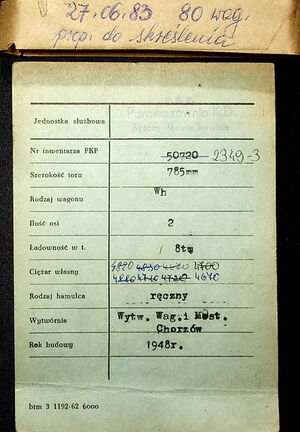 27.06.83 80 wag.
prop. do skreślenia
Jednostka służbowa
Parowozownia K.D.
Bytom
Nr inwentarza PKP 50720 2349-3
Szerokość toru 785mm
Rodzaj wagonu Wh
Ilość osi 2
Ładowność w t. 8t
Ciężar własny
4670
Rodzaj hamulca ręczny
Wytwórnia Wytw. Wag.i Most.
Chorzów
Rok budowy 1948r.
btm 3 1192-62 6000